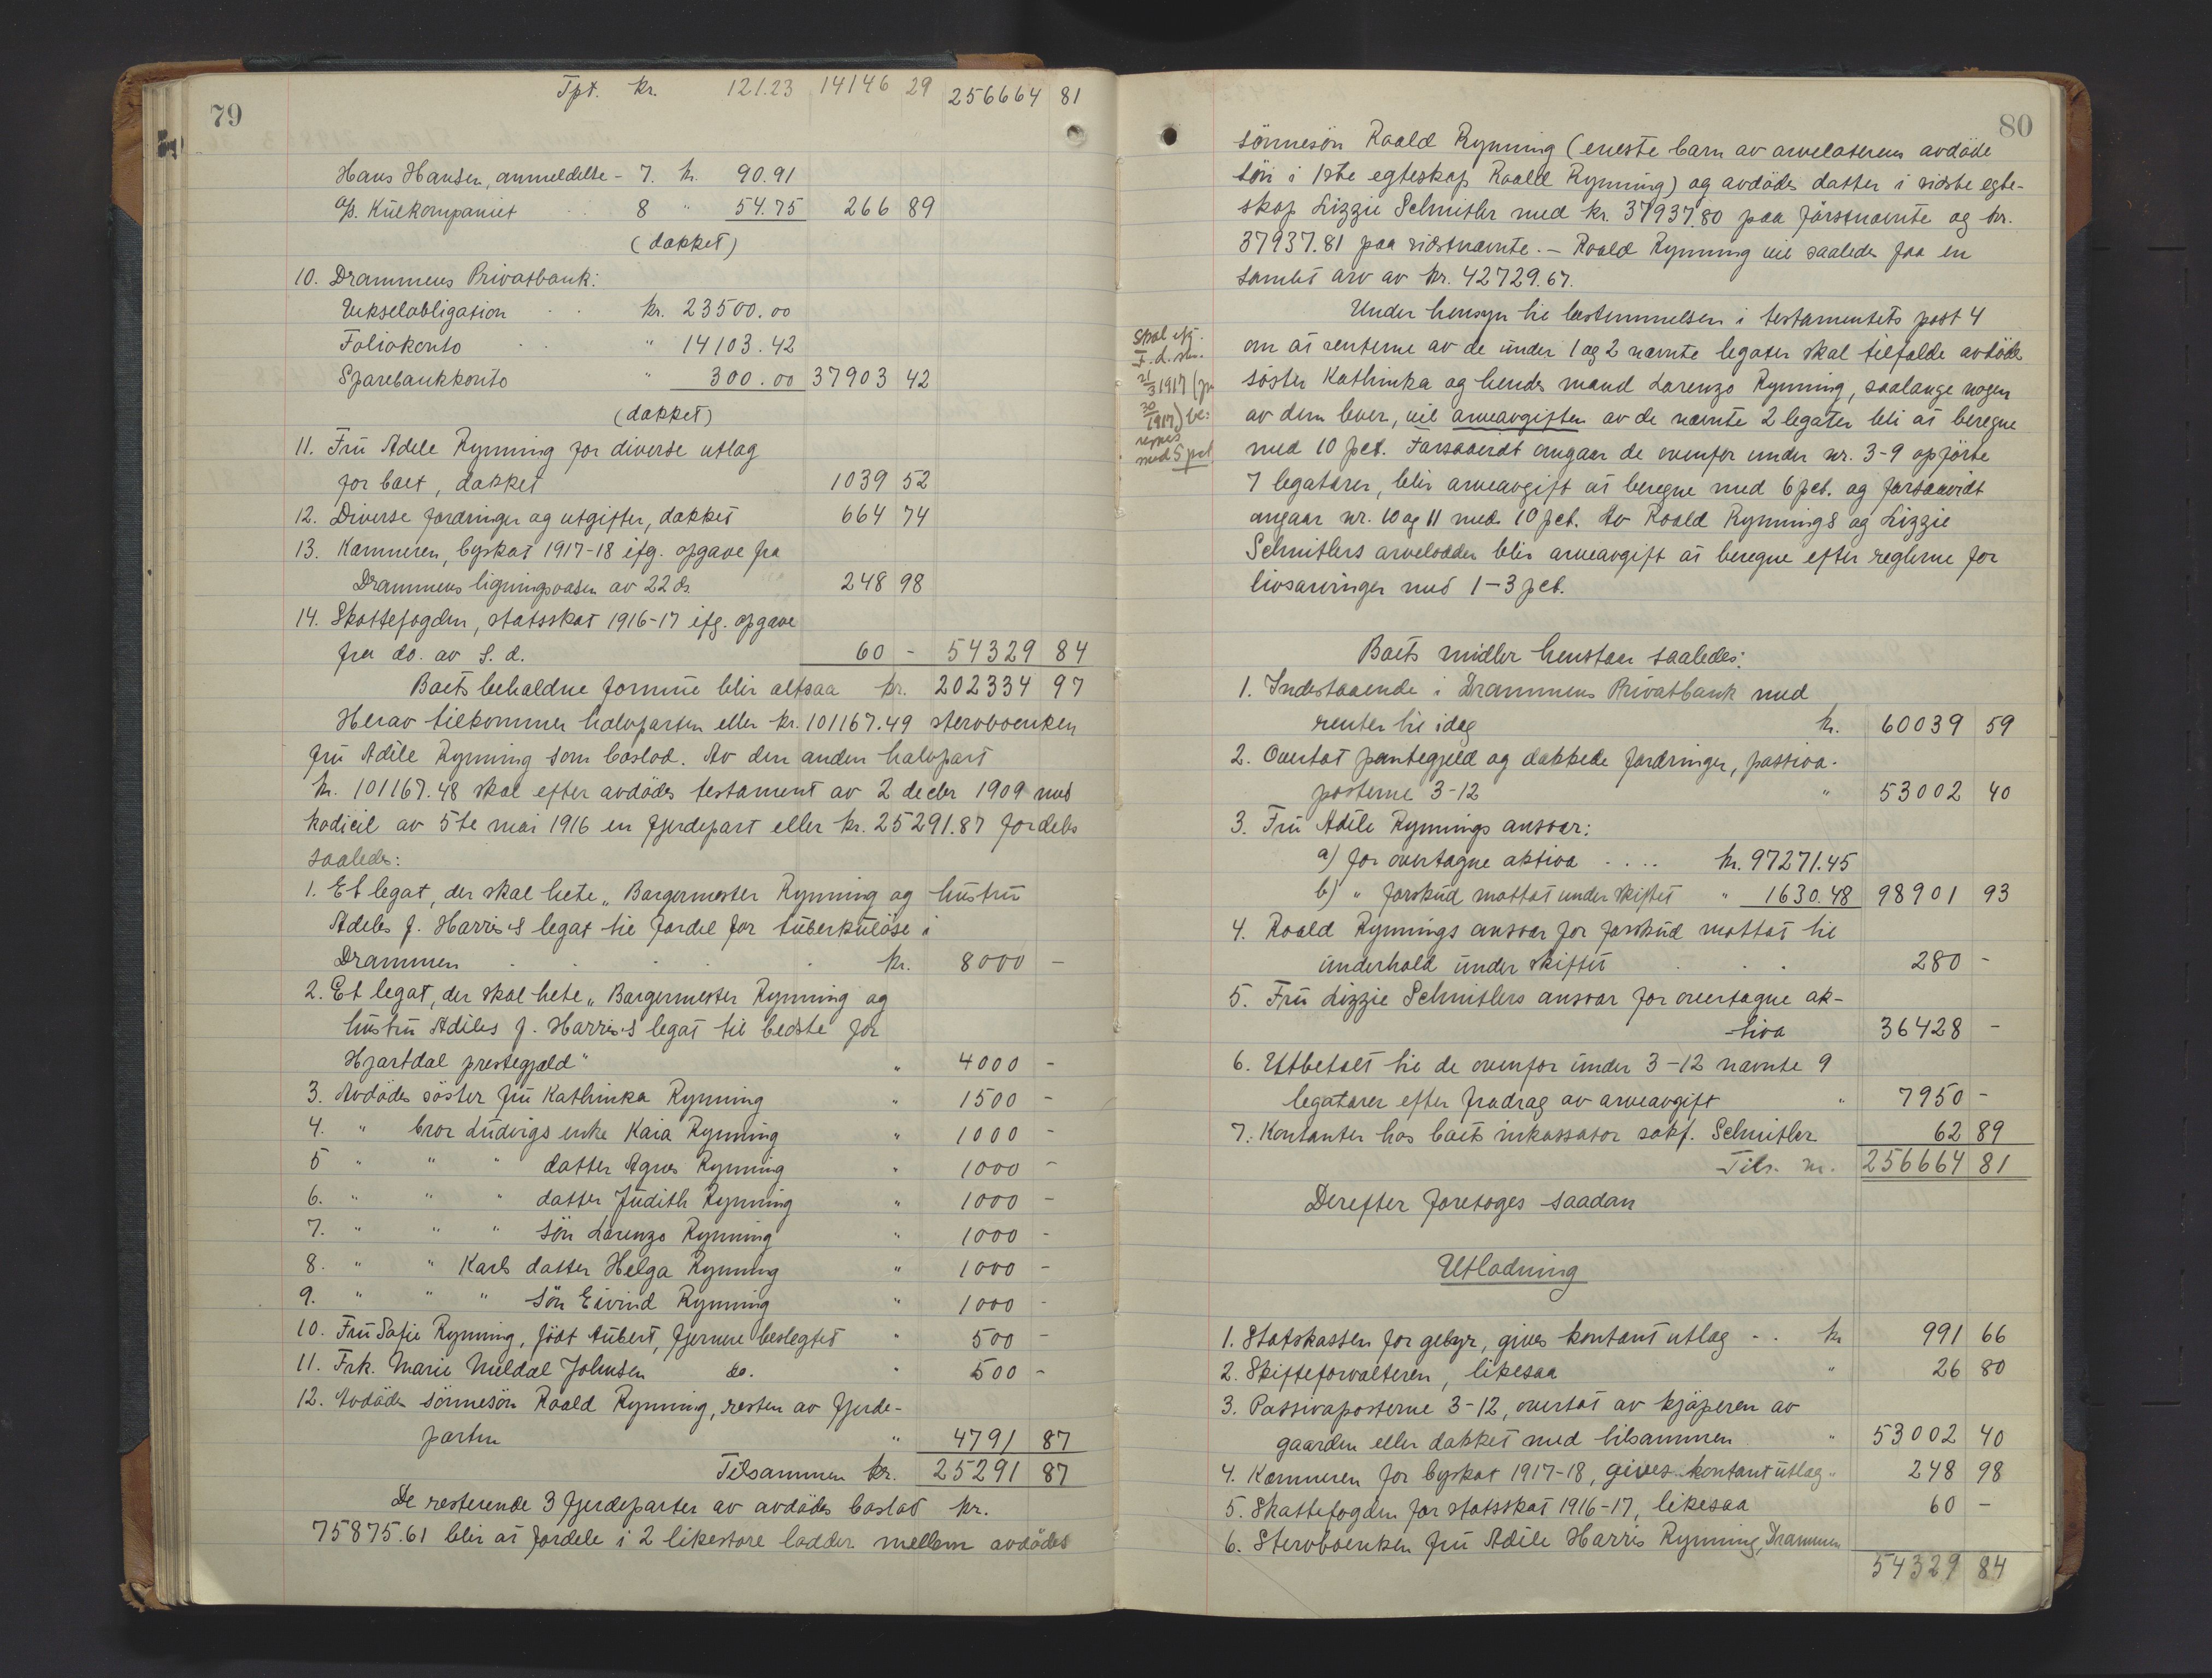 79
Tpt. kr. 121.23 14146 29 256664 81
Hans Hansen, anmeldelse - 7. kr. 90.91
A/s. Kulkompaniet 8 " 54.75 266 89
(dækket)
10. Drammens Privatbank:
Vekselobligation kr. 23500.00
Foliokonto " 14103.42
Sparebankkonto " 300.00 37903 42
(dækket)
11. Fru Adele Rynning for diverse utlæg
for boet, dækket 1039 52
12. Diverse fordringer og utgifter, dækket 664 74
13. Kæmneren, byskat 1917-18 ifg. opgave fra
Drammens ligningsvæsen av 22 ds. 248 98
14. Skattefogden, statsskat 1916-17 ifg. opgave
fra do. av s. d. 60 - 54329 84
Boets beholdne formue blir altsaa kr. 202334 97
Herav tilkommer halvparten eller kr. 101167.49 stervboenken
fru Adéle Rynning som boslod. Av den anden halvpart
kr. 101167.48 skal efter avdødes testament av 2 decbr 1909 med
kodicil av 5te mai 1916 en fjerdepart eller kr. 25291.87 fordeles
saaledes:
1. Et legat, der skal hete "Borgermester Rynning og hustru
Adeles f. Harris's legat til fordel for tuberkuløse i
Drammen kr. 8000 -
2. Et legat, der skal hete "Borgermester Rynning og
hustru Adéles f. Harris's legat til bedste for
Hjartdal prestegjæld" " 4000 -
3. Avdødes søster fru Kathinka Rynning " 1500 -
4. " bror Ludvigs enke Kaia Rynning " 1000 -
5 " " " datter Agnes Rynning " 1000 -
6. " " " datter Judith Rynning " 1000 -
7. " " " søn Lorenzo Rynning " 1000 -
8. " " Karls datter Helga Rynning " 1000 -
9. " " " søn Eivind Rynning " 1000 -
10. Fru Sofie Rynning, født Aubert, fjernere beslegtet " 500 -
11. Frk. Marie Meldal Johnsen do. " 500 -
12. Avdødes sønnesøn Roald Rynning, resten av fjerde-
parten " 4791 87
Tilsammen kr. 25291 87
De resterende 3 fjerdeparter av avdødes boslod kr.
75875.61 blir at fordele i 2 likestore lodder mellem avdødes
80
sønnesøn Roald Rynning (eneste barn av arvelaterens avdøde
søn i 1ste egteskap Roald Rynning) og avdødes datter i sidste egte-
skap Lizzie Schmitler med kr. 37937.80 paa førstnævnte og kr.
37937.81 paa sidstnævnte. - Roald Rynning vil saaledes faa en
samlet arv av kr. 42729.67.
Under hensyn til bestemmelsen i testamentets post 4
om at renterne av de under 1 og 2 nævnte legater skal tilfalde avdødes
søster Kathinka og hendes mand Lorenzo Rynning, saalænge nogen
av dem lever, vil arveavgiften av de nævnte 2 legater bli at beregne
med 10 pct. Forsaavidt angaar de ovenfor under nr. 3-9 opførte
7 legatarer, blir arveavgift at beregne med 6 pct. og forsaavidt
angaar nr. 10 og 11 med 10 pct. Av Roald Rynnings og Lizzie
Schmitlers arvelodder blir arveavgift at beregne efter reglerne for
livsarvinger med 1-3 pct.
skal efg.
F. d. skr.
21/3 1917
30/ 1917) be:
regnes
med 5 pct
Boets midler henstaar saaledes:
1. Indestaaende i Drammens Privatbank med
renter til idag kr. 60039 59
2. Overtat pantegjeld og dækkede fordringer, passiva-
posterne 3-12 " 53002 40
3. Fru Adéle Rynnings ansvar:
a) for overtagne aktiva .... kr. 97271.45
b) " forskud mottat under skiftet " 1630.48 98901 93
4. Roald Rynnings ansvar for forskud mottat til
underhold under skiftet 280 -
5. Fru Lizzie Schmitlers ansvar for overtagne ak-
tiva 36428 -
6. Utbetalt til de ovenfor under 3-12 nævnte 9
legatarer efter fradrag av arveavgift " 7950 -
7. Kontanter hos boets inkassator sakf. Schmitler 62 89
Tils. kr. 256664 81
Derefter foretoges saadan
Utlodning
1. Statskassen for gebyr, gives kontant utlæg - . kr 991 66
2. Skifteforvalteren, likesaa " 26 80
3. Passivaposterne 3-12, overtat av kjøperen av
gaarden eller dækket med tilsammen " 53002 40
4. Kæmneren for byskat 1917-18, gives kontant utlæg " 248 98
5. Skattefogden for statsskat 1916-17, likesaa 60 -
6. Stervboenken fru Adéle Harris Rynning, Drammen
54329 84